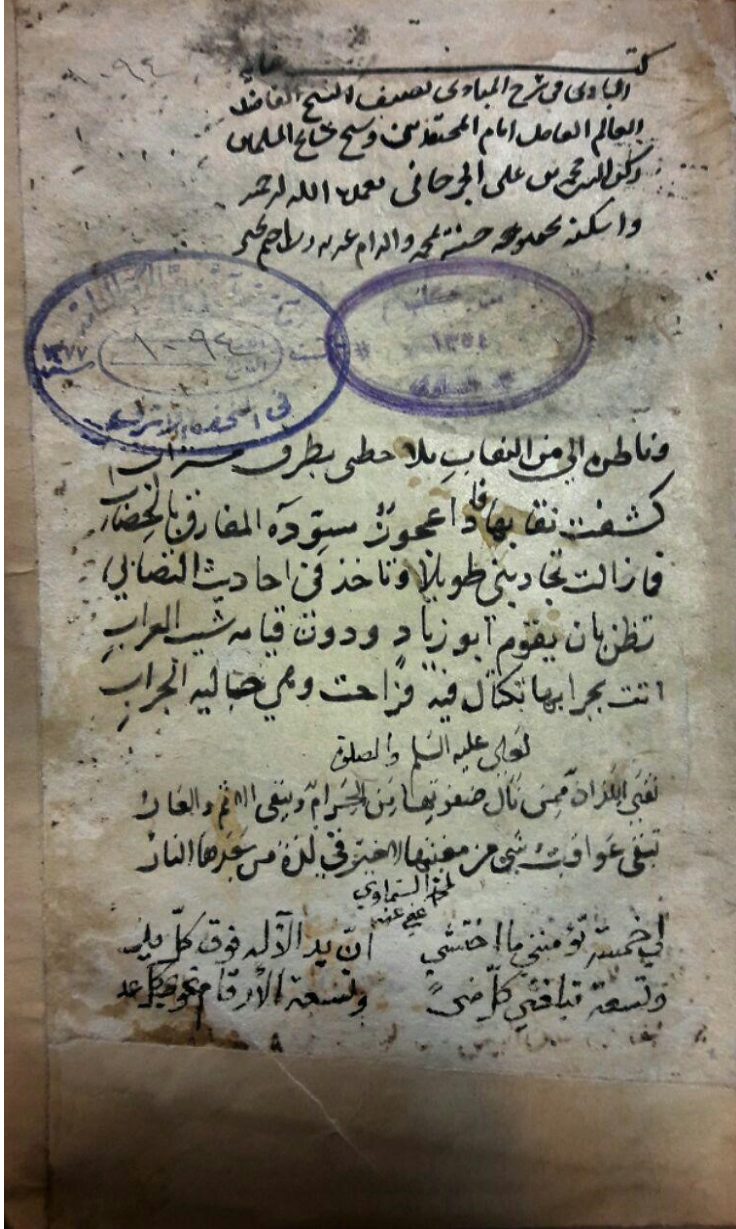 ١٠٩٤
كتاب
البادي في شرح المبادي تصنيف الشيخ الفاضل
العالم العامل امام المجتهدين وشيخ مشايخ المسلمين
ركن الدين محمد بن علي الجرجاني تغمده الله برحمته
واسكنه بحبوحة جنته بمحمد واله
مكتبة
١٣٥٤
محمد السماوي
١٠٩٤
١٣٧٧
وناظرة الي من النقاب تلاحظني بطرف مستراب
كشفت نقابها فاذا عجوز مسودة المفارق بالخضاب
فما زالت تجاذبني طويلا وتاخذ في احاديث التصابي
تظن بان يقوم ابو زياد ودون قيامه شيب الغراب
اتت بجرابها تكتال فيه فراحت وهي خاليه الجراب
لعلي عليه السلم والصلوة
تفنى اللذاذة ممن نال صفوتها من الحرام ويبقى الاثم والعار
تبقى عواقب سوء من مغبتها لا خير في لذة من بعدها النار
لمحمد السماوي
عفي عنه
لي خمسة تؤمنني ما اختشي ان يد الآله فوق كل يد
وتسعة وتسعة الأرقام